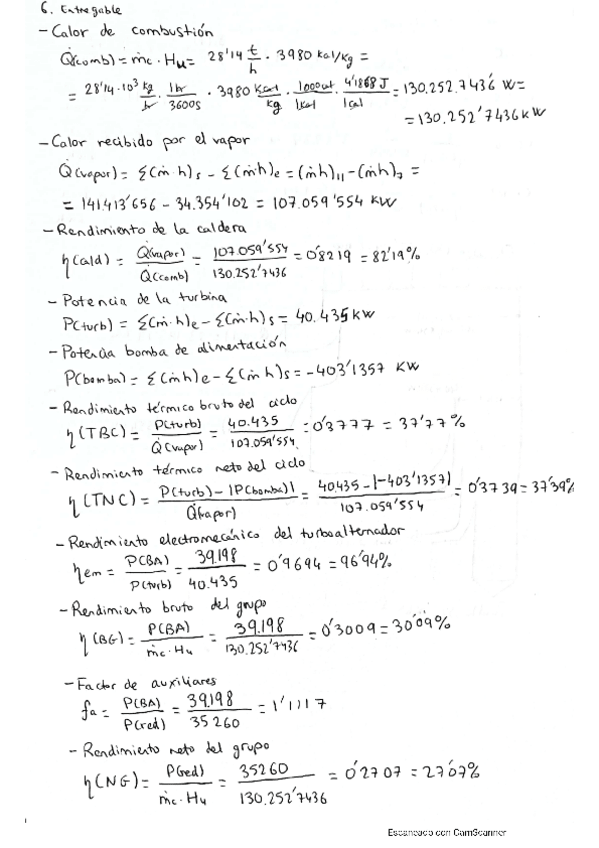 6. Entregable
- Calor de combustión
Q̇(comb) = ṁc · Hu = 28'14 t/h · 3980 kcal/kg =
= 28'14·10³ kg/hr · 1hr/3600s · 3980 kcal/kg · 1000cal/1kcal · 4'1868J/1cal = 130.252.7436 W =
= 130.252'7436 kW
- Calor recibido por el vapor
Q̇(vapor) = Σ(ṁ·h)s - Σ(ṁh)e = (ṁh)11 - (ṁh)7 =
= 141413'656 - 34.354'102 = 107.059'554 kW
- Rendimiento de la caldera
η(cald) = Q̇(vapor)/Q̇(comb) = 107.059'554/130.252'7436 = 0'8219 = 82'19%
- Potencia de la turbina
P(turb) = Σ(ṁ·h)e - Σ(ṁ·h)s = 40.435 kW
- Potencia bomba de alimentación
P(bomba) = Σ(ṁh)e - Σ(ṁh)s = -403'1357 kW
- Rendimiento térmico bruto del ciclo
η(TBC) = P(turb)/Q̇(vapor) = 40.435/107.059'554 = 0'3777 = 37'77%
- Rendimiento térmico neto del ciclo
η(TNC) = P(turb) - |P(bomba)|/Q̇(vapor) = 40435 - |-403'1357|/107.059'554 = 0'3739 = 37'39%
- Rendimiento electromecánico del turboalternador
ηem = P(BA)/P(turb) = 39.198/40.435 = 0'9694 = 96'94%
- Rendimiento bruto del grupo
η(BG) = P(BA)/ṁc·Hu = 39.198/130.252'7436 = 0'3009 = 30'09%
- Factor de auxiliares
fa = P(BA)/P(red) = 39.198/35260 = 1'1117
- Rendimiento neto del grupo
η(NG) = P(red)/ṁc·Hu = 35260/130.252'7436 = 0'2707 = 27'07%
Escaneado con CamScanner